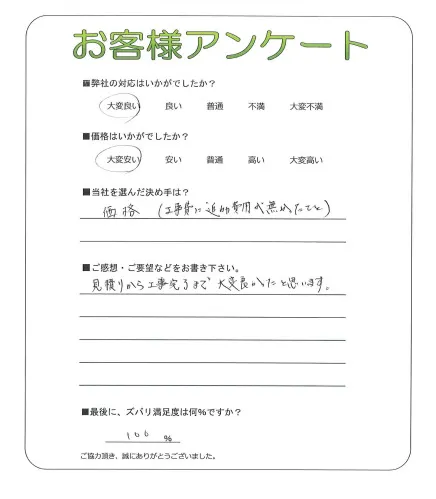 お客様アンケート
■弊社の対応はいかがでしたか？
大変良い 良い 普通 不満 大変不満
■価格はいかがでしたか？
大変安い 安い 普通 高い 大変高い
■当社を選んだ決め手は？
価格 (工事費に追加費用が無かったこと)
■ご感想・ご要望などをお書き下さい。
見積りから工事完了まで大変良かったと思います。
■最後に、ズバリ満足度は何%ですか？
100 %
ご協力頂き、誠にありがとうございました。